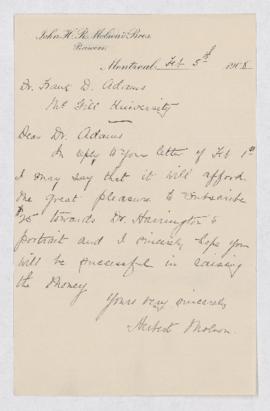 John H. R. Molson & Bros.
Brewers
Montreal, Feb 5th 1908
Dr. Frank D. Adams
McGill University
Dear Dr. Adams
In reply to your letter of Feb 1st
I may say that it will afford
me great pleasure to subscribe
$25 towards Dr. Harrington's
portrait and I sincerely hope you
will be successful in raising
the money
Yours very sincerely
Herbert Molson.